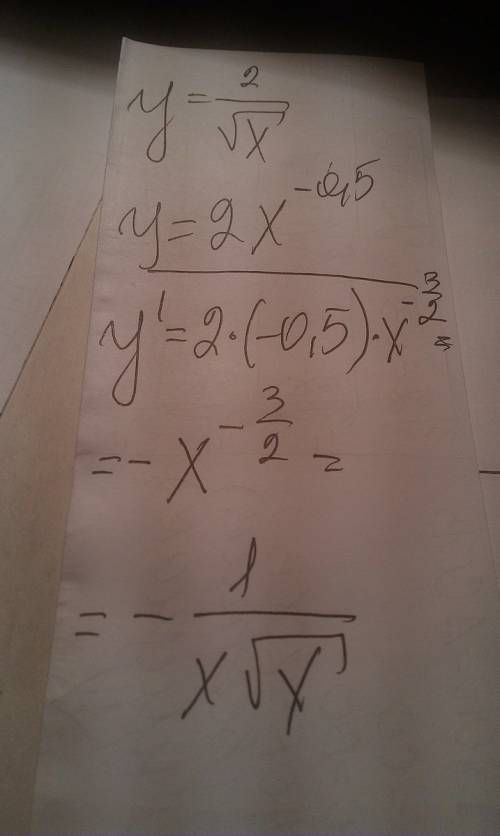 y = 2/√x
y = 2x^(-0,5)
y' = 2·(-0,5)·x^(-3/2) =
= - x^(-3/2) =
= - 1/(x√x)